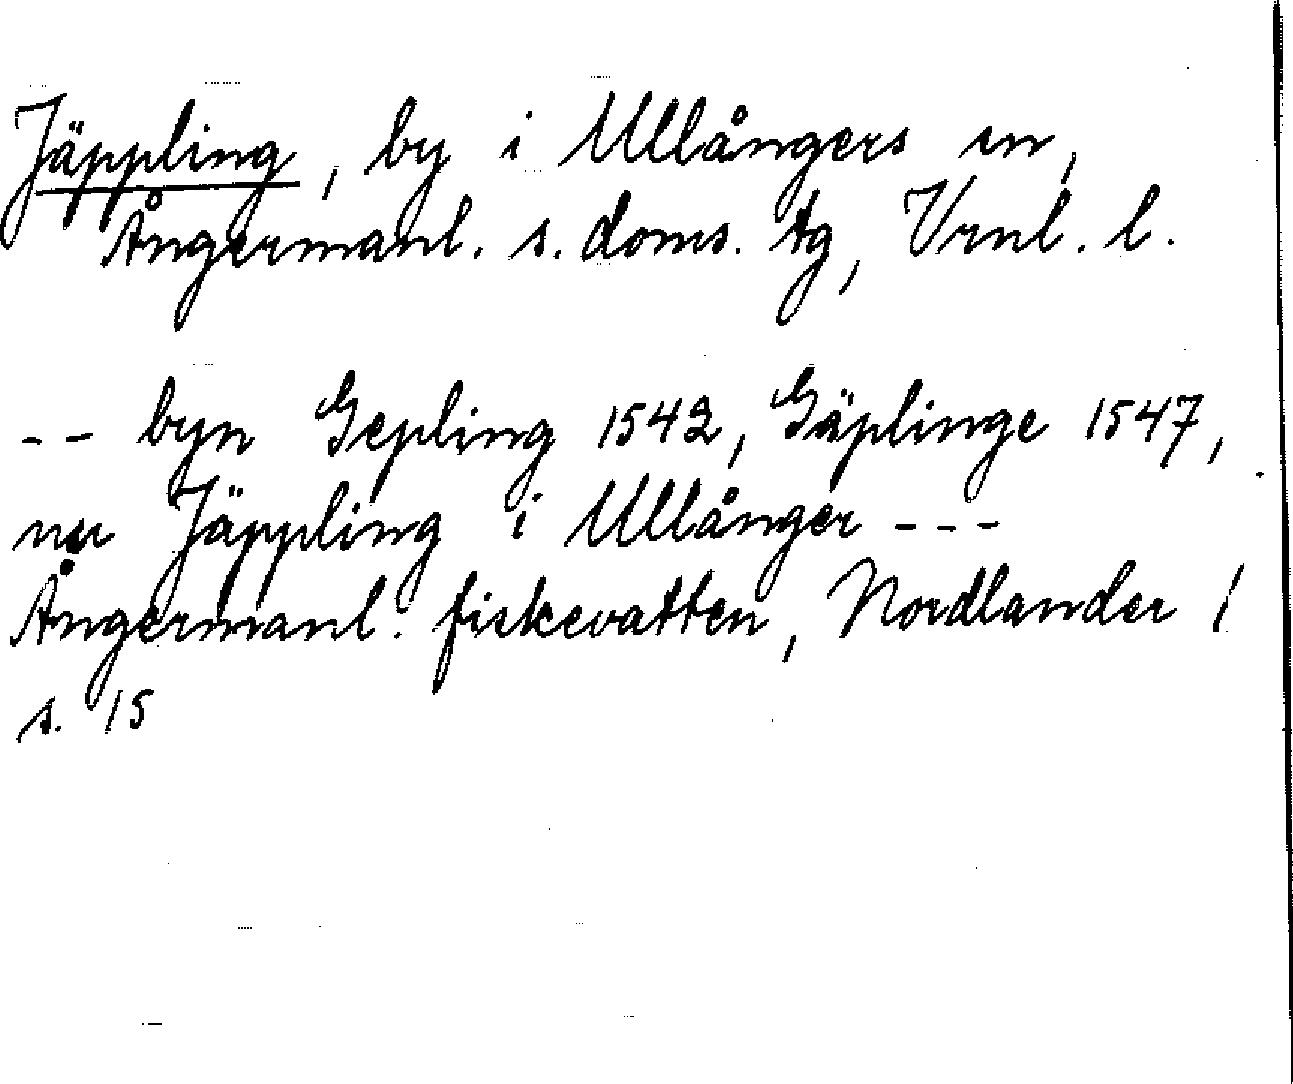 Jäppling, by i Ullångers sn,
Ångermanl. s. doms. tg, Vrnl. l.
-- byn Gepling 1542, Gäplinge 1547,
nu Jäppling i Ullånger ---
Ångermanl. fiskevatten, Nordlander /
s. 15